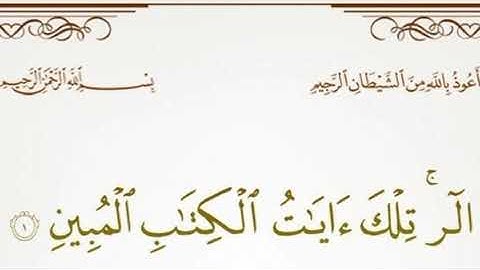 أَعُوذُ بِاللَّهِ مِنَ الشَّيْطَانِ الرَّجِيمِ
بِسْمِ اللَّهِ الرَّحْمَٰنِ الرَّحِيمِ
الٓر ۚ تِلْكَ ءَايَـٰتُ ٱلْكِتَـٰبِ ٱلْمُبِينِ ١